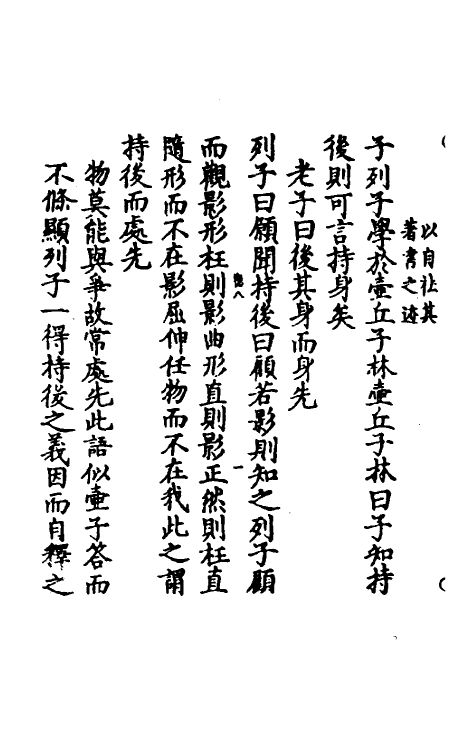 以自壮其
著書之迹
子列子學於壷丘子林壷丘子林曰子知持
後則可言持身矣
老子曰後其身而身先
列子曰願聞持後曰顧若影則知之列子顧
而觀影形枉則影曲形直則影正然則枉直
隨形而不在影屈伸任物而不在我此之謂
持後而處先
物莫能與爭故常處先此語似壷子答而
不條顯列子一得持後之義因而自釋之